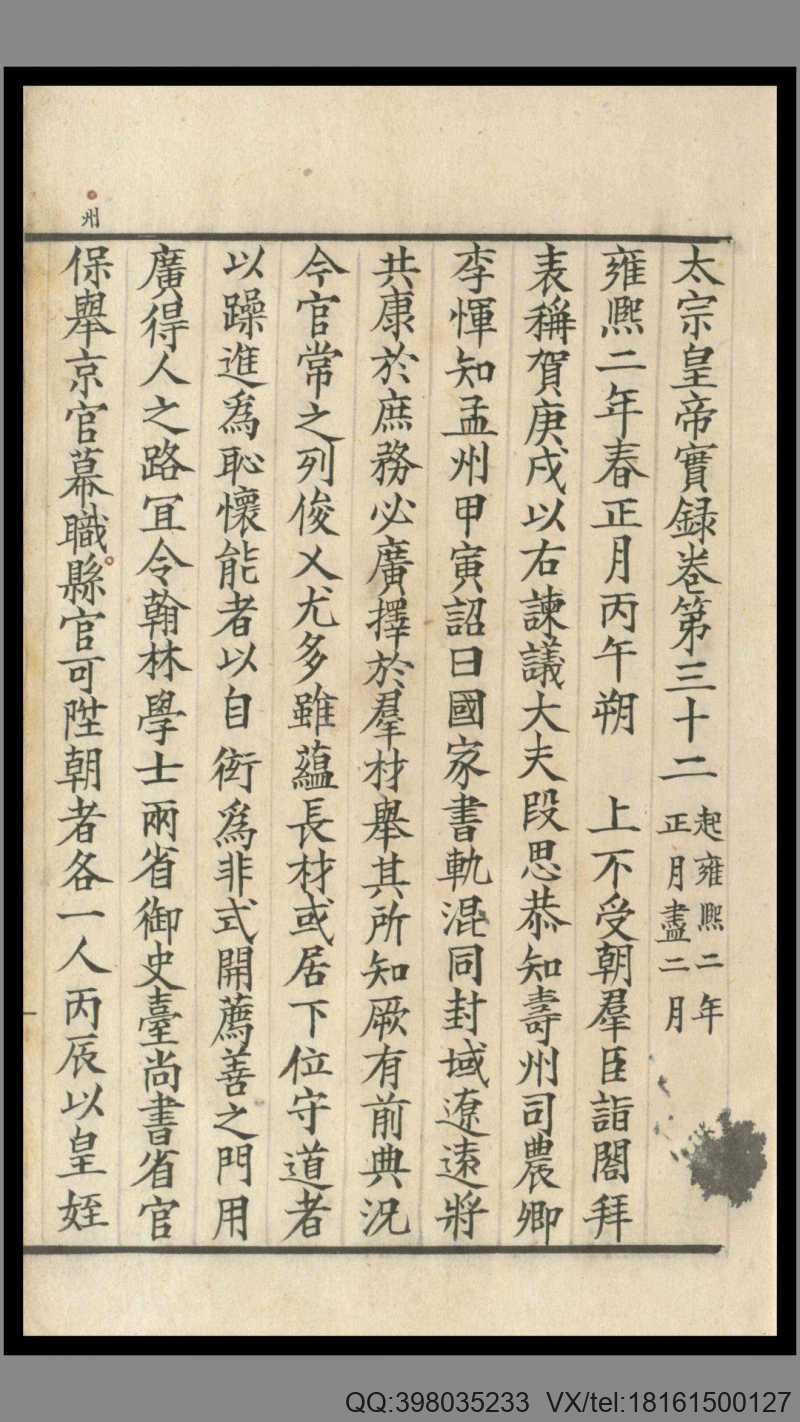 太宗皇帝實録卷第三十二 起雍熙二年
正月盡二月
雍熙二年春正月丙午朔 上不受朝羣臣詣閤拜
表稱賀庚戌以右諫議大夫段思恭知壽州司農卿
李惲知孟州甲寅詔曰國家書軌混同封域遼遠將
共康於庶務必廣擇於羣材舉其所知厥有前典况
今官常之列俊乂尤多雖藴長材或居下位守道者
以躁進爲恥懷能者以自衒爲非式開薦善之門用
廣得人之路冝令翰林學士兩省御史臺尚書省官
保舉京官幕職縣官可陞朝者各一人丙辰以皇姪
州
QQ:398035233 VX/tel:18161500127